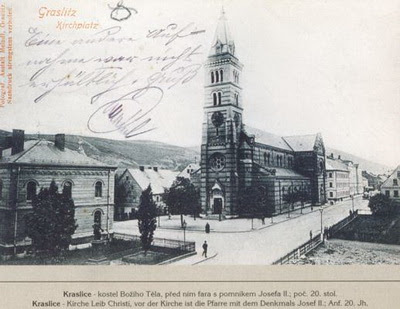 Graslitz
Kirchplatz
Eine andere Auf-
nahme war nicht
erhältlich. Gruß
Kraslice - kostel Božího Těla, před ním fara s pomníkem Josefa II.; poč. 20. stol.
Kraslice - Kirche Leib Christi, vor der Kirche ist die Pfarre mit dem Denkmals Josef II.; Anf. 20. Jh.